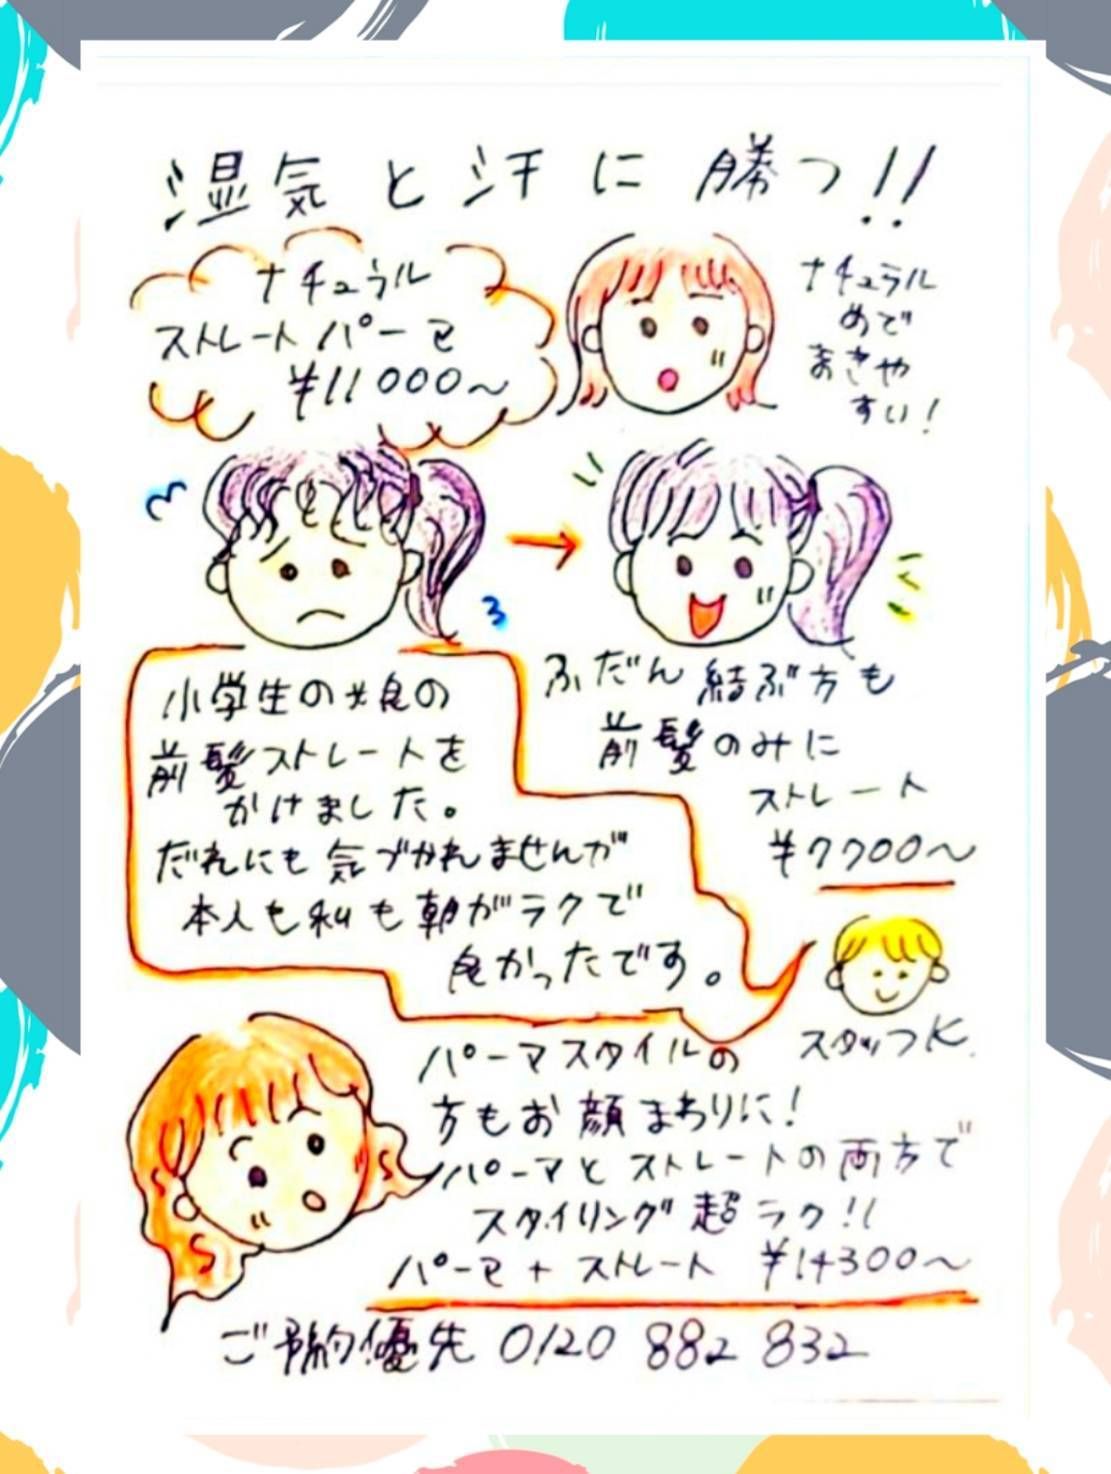 湿気と汗に勝つ!!
ナチュラル
ストレートパーマ
¥11000〜
ナチュラル
めで
あきや
すい!
小学生の娘の
前髪ストレートを
かけました。
だれにも気づかれませんが
本人も私も朝がラクで
良かったです。
ふだん結ぶ方も
前髪のみに
ストレート
¥7700〜
スタッフK.
パーマスタイルの
方もお顔まわりに!
パーマとストレートの両方で
スタイリング超ラク!!
パーマ+ストレート ¥14300〜
ご予約優先 0120 882 832